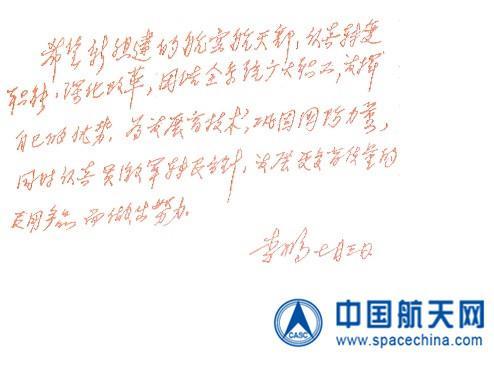 希望新组建的航空航天部，认真转变
职能，深化改革，团结全系统广大职工，发挥
自己的优势，为发展高技术，巩固国防力量，
同时认真贯彻军转民方针，发展更多高质量的
民用产品而做出努力。
李鹏 七月三日
中国航天网
CASC
www.spacechina.com